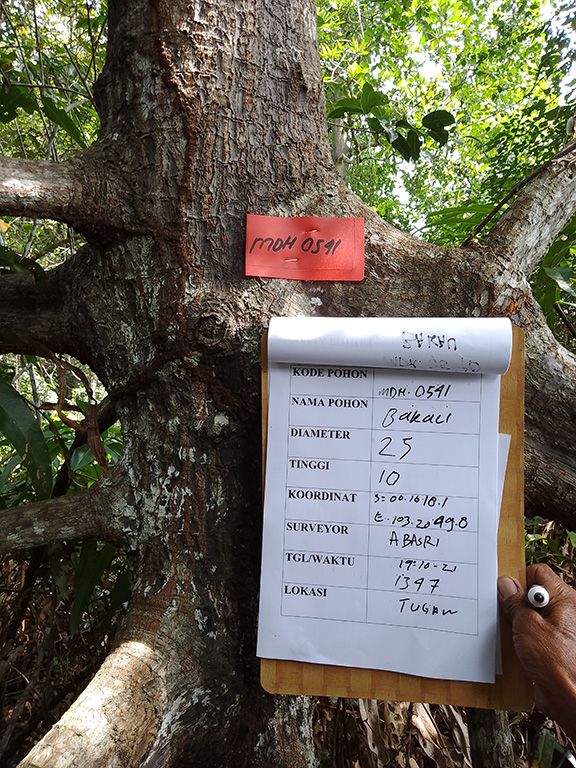 MDH 0541
KODE POHON MDH. 0541
NAMA POHON Bakau
DIAMETER 25
TINGGI 10
KOORDINAT S= 00.1018.1
E. 103.20 49.8
SURVEYOR ABASRI
TGL/WAKTU 19-10-21
1347
LOKASI TUGAW